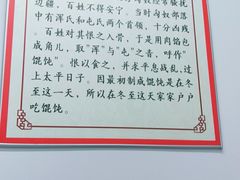 边疆，百姓不得安宁。当时匈奴部落
中有浑氏和屯氏两个首领，十分凶残
。百姓对其恨之入骨，于是用肉馅包
成角儿，取“浑”与“屯”之音，呼作“
馄饨”。恨以食之，并求平息战乱，过
上太平日子。因最初制成馄饨是在冬
至这一天，所以在冬至这天家家户户
吃馄饨。